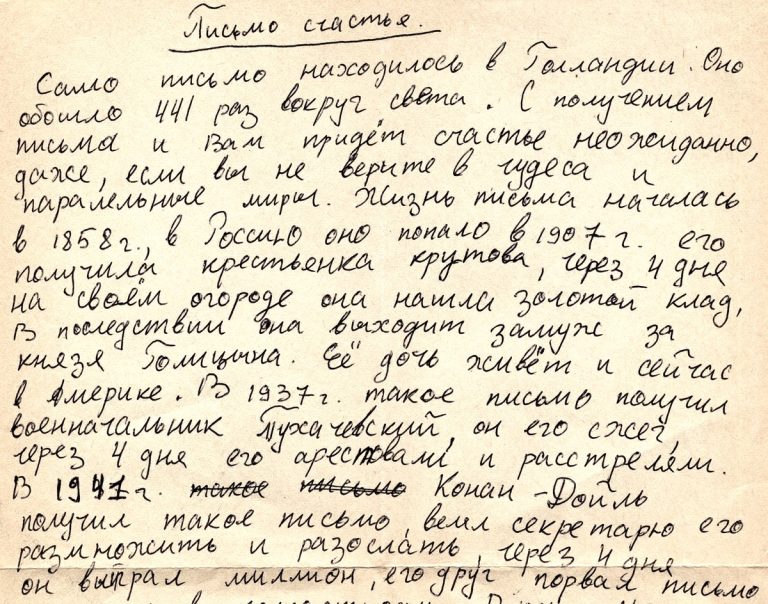 Письмо счастье.
Само письмо находилось в Голландии. Оно
обошло 441 раз вокруг света. С получением
письма и Вам придёт счастье неожиданно,
даже, если вы не верите в чудеса и
паралельные миры. Жизнь письма началась
в 1858 г., в Россию оно попало в 1907 г. его
получила крестьенка крутова, через 4 дня
на своём огороде она нашла золотой клад,
В последствии она выходит замуж за
князя Голицына. Её дочь живёт и сейчас
в Америке. В 1937 г. такое письмо получил
военначальник Тухачевский, он его сжег,
через 4 дня его арестовали и расстреляли.
В 1941 г. такое письмо Конан-Дойль
получил такое письмо, велил секретарю его
размножить и разослать, через 4 дня
он выграл миллион, его друг порвал письмо